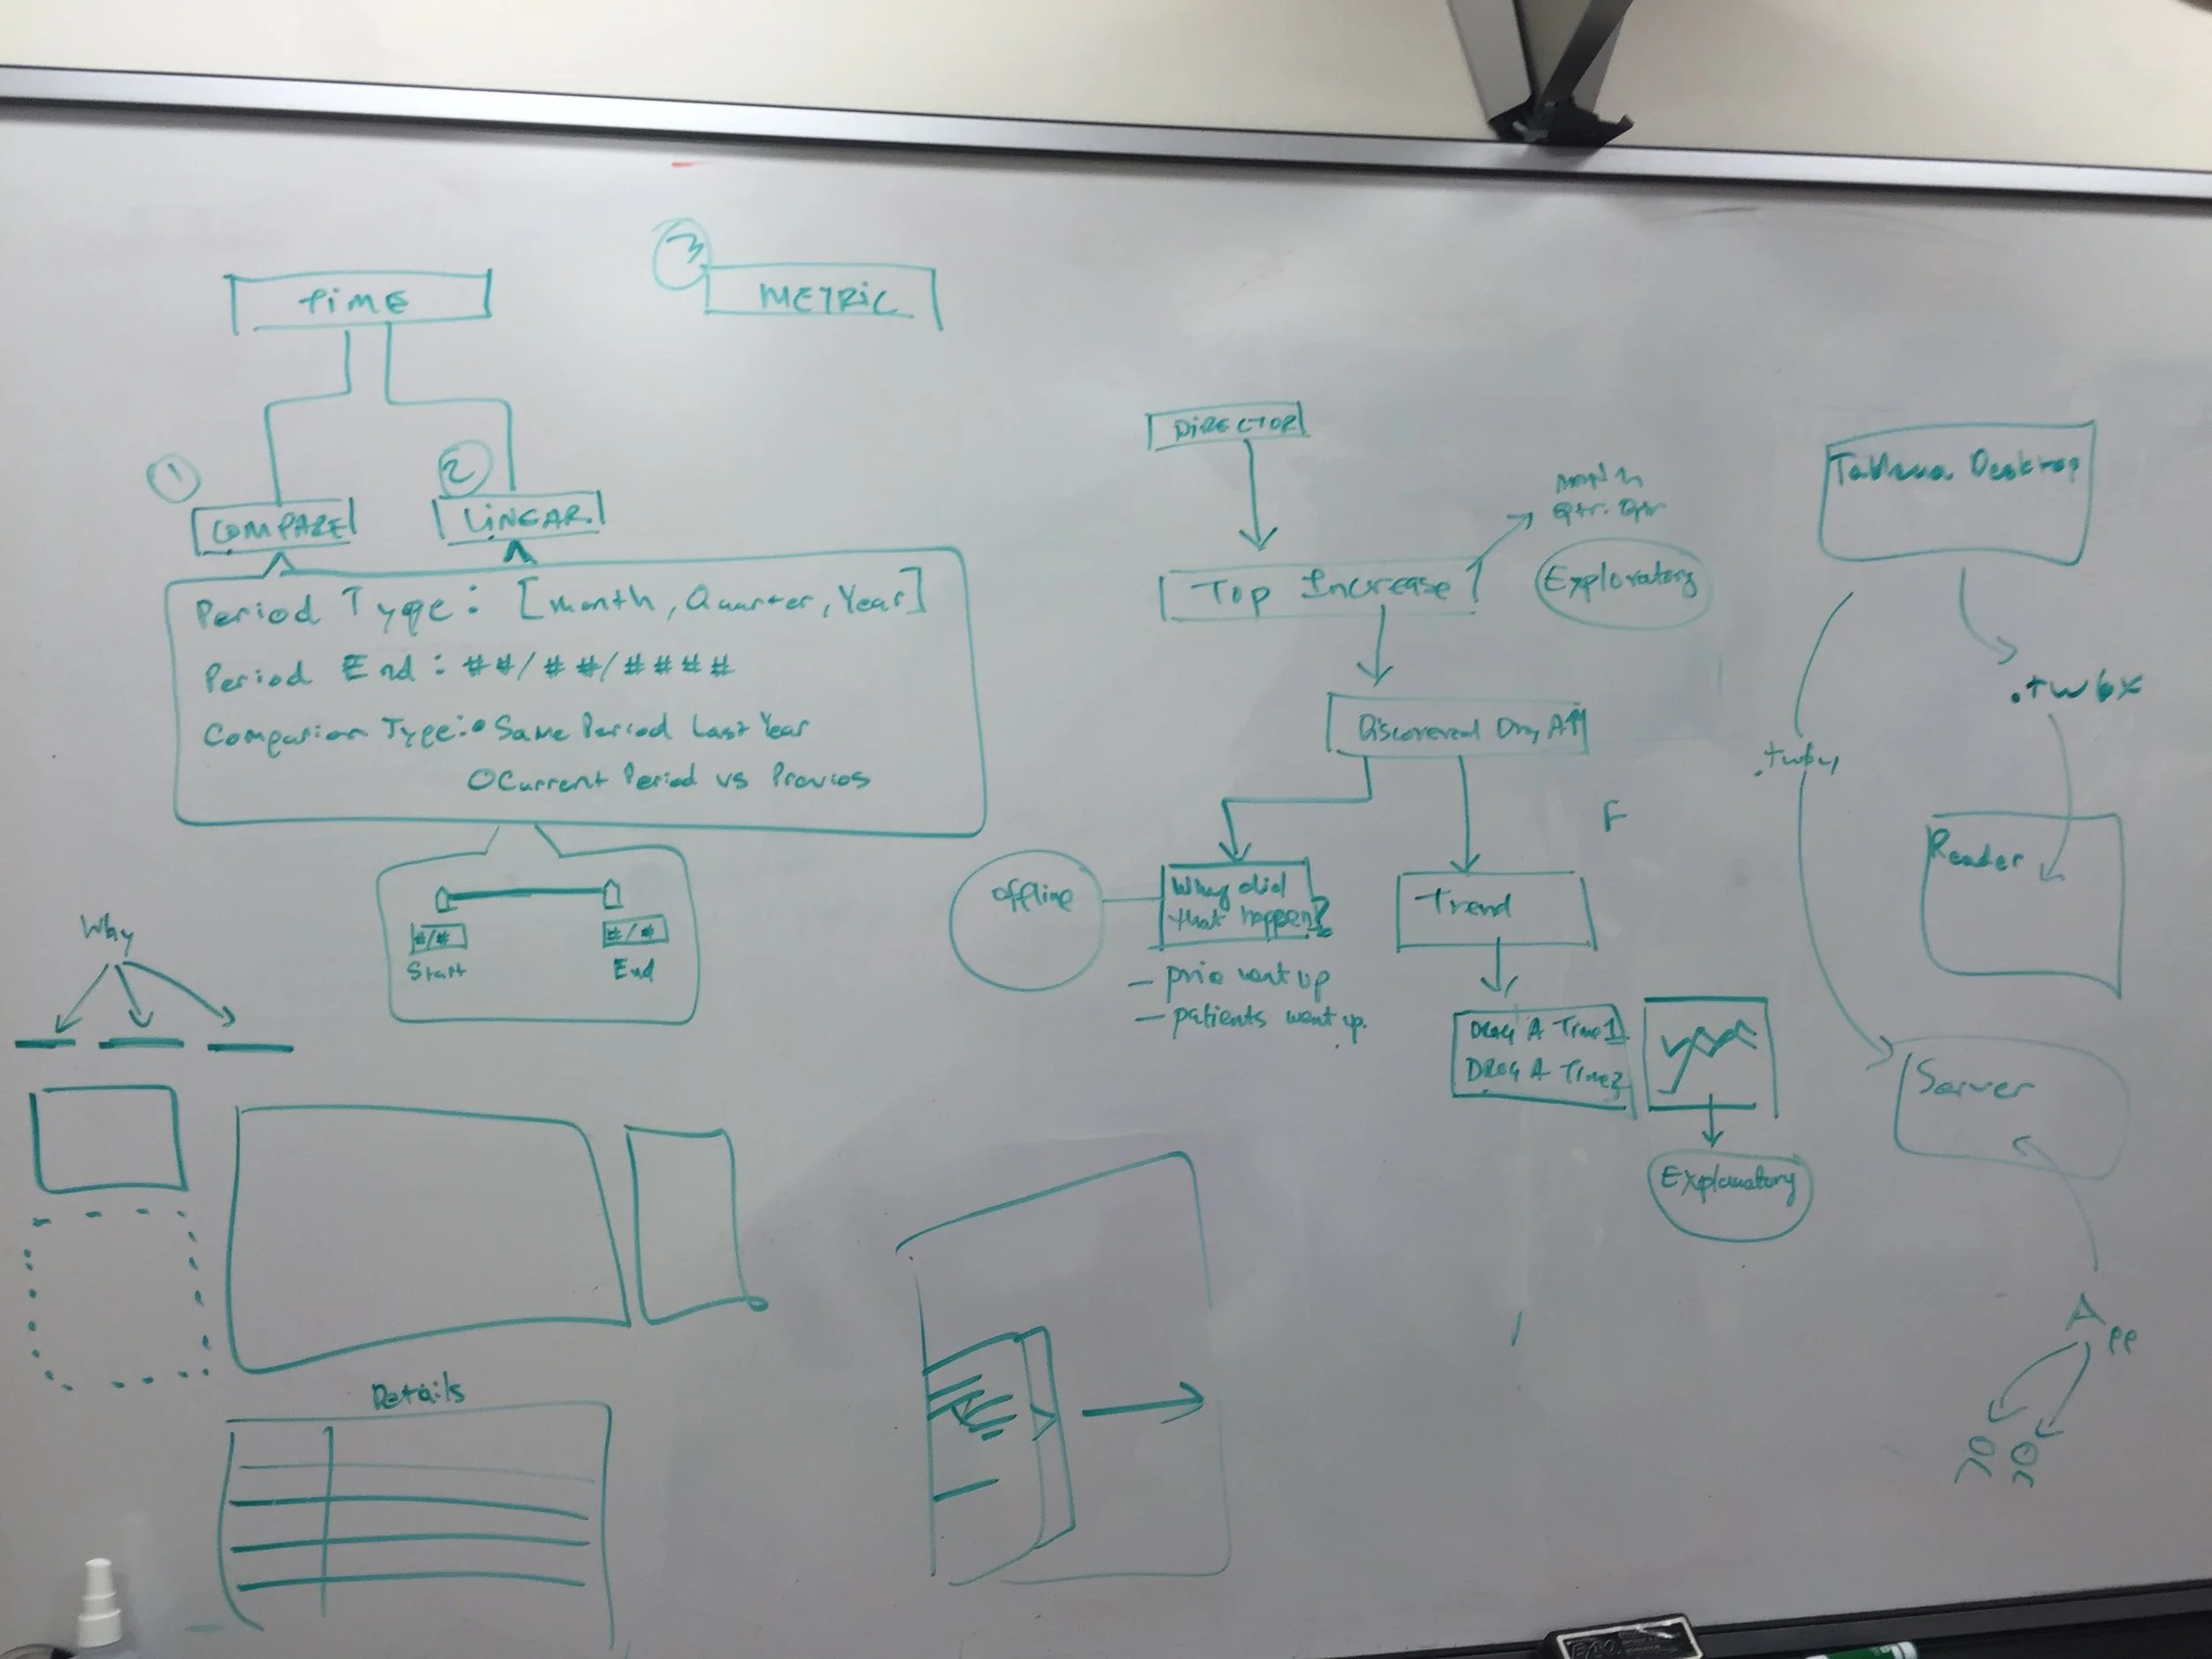 3
TIME
METRIC
1
2
COMPARE
LINEAR
Period Type: [Month, Quarter, Year]
Period End: ##/##/####
Comparison Type: Same Period Last Year
Current Period vs Previos
#/#
#/#
Start
End
Why
Details
DIRECTOR
Qtr. Qtr
Top Increase
Exploratory
Discovered
F
Offline
Why did
that happen?
Trend
— price went up
— patients went up.
Drug A Time 1
DRug A Time 2
Explanatory
Tableau Desktop
.twbx
.twbx
Reader
Server
App
EXPO